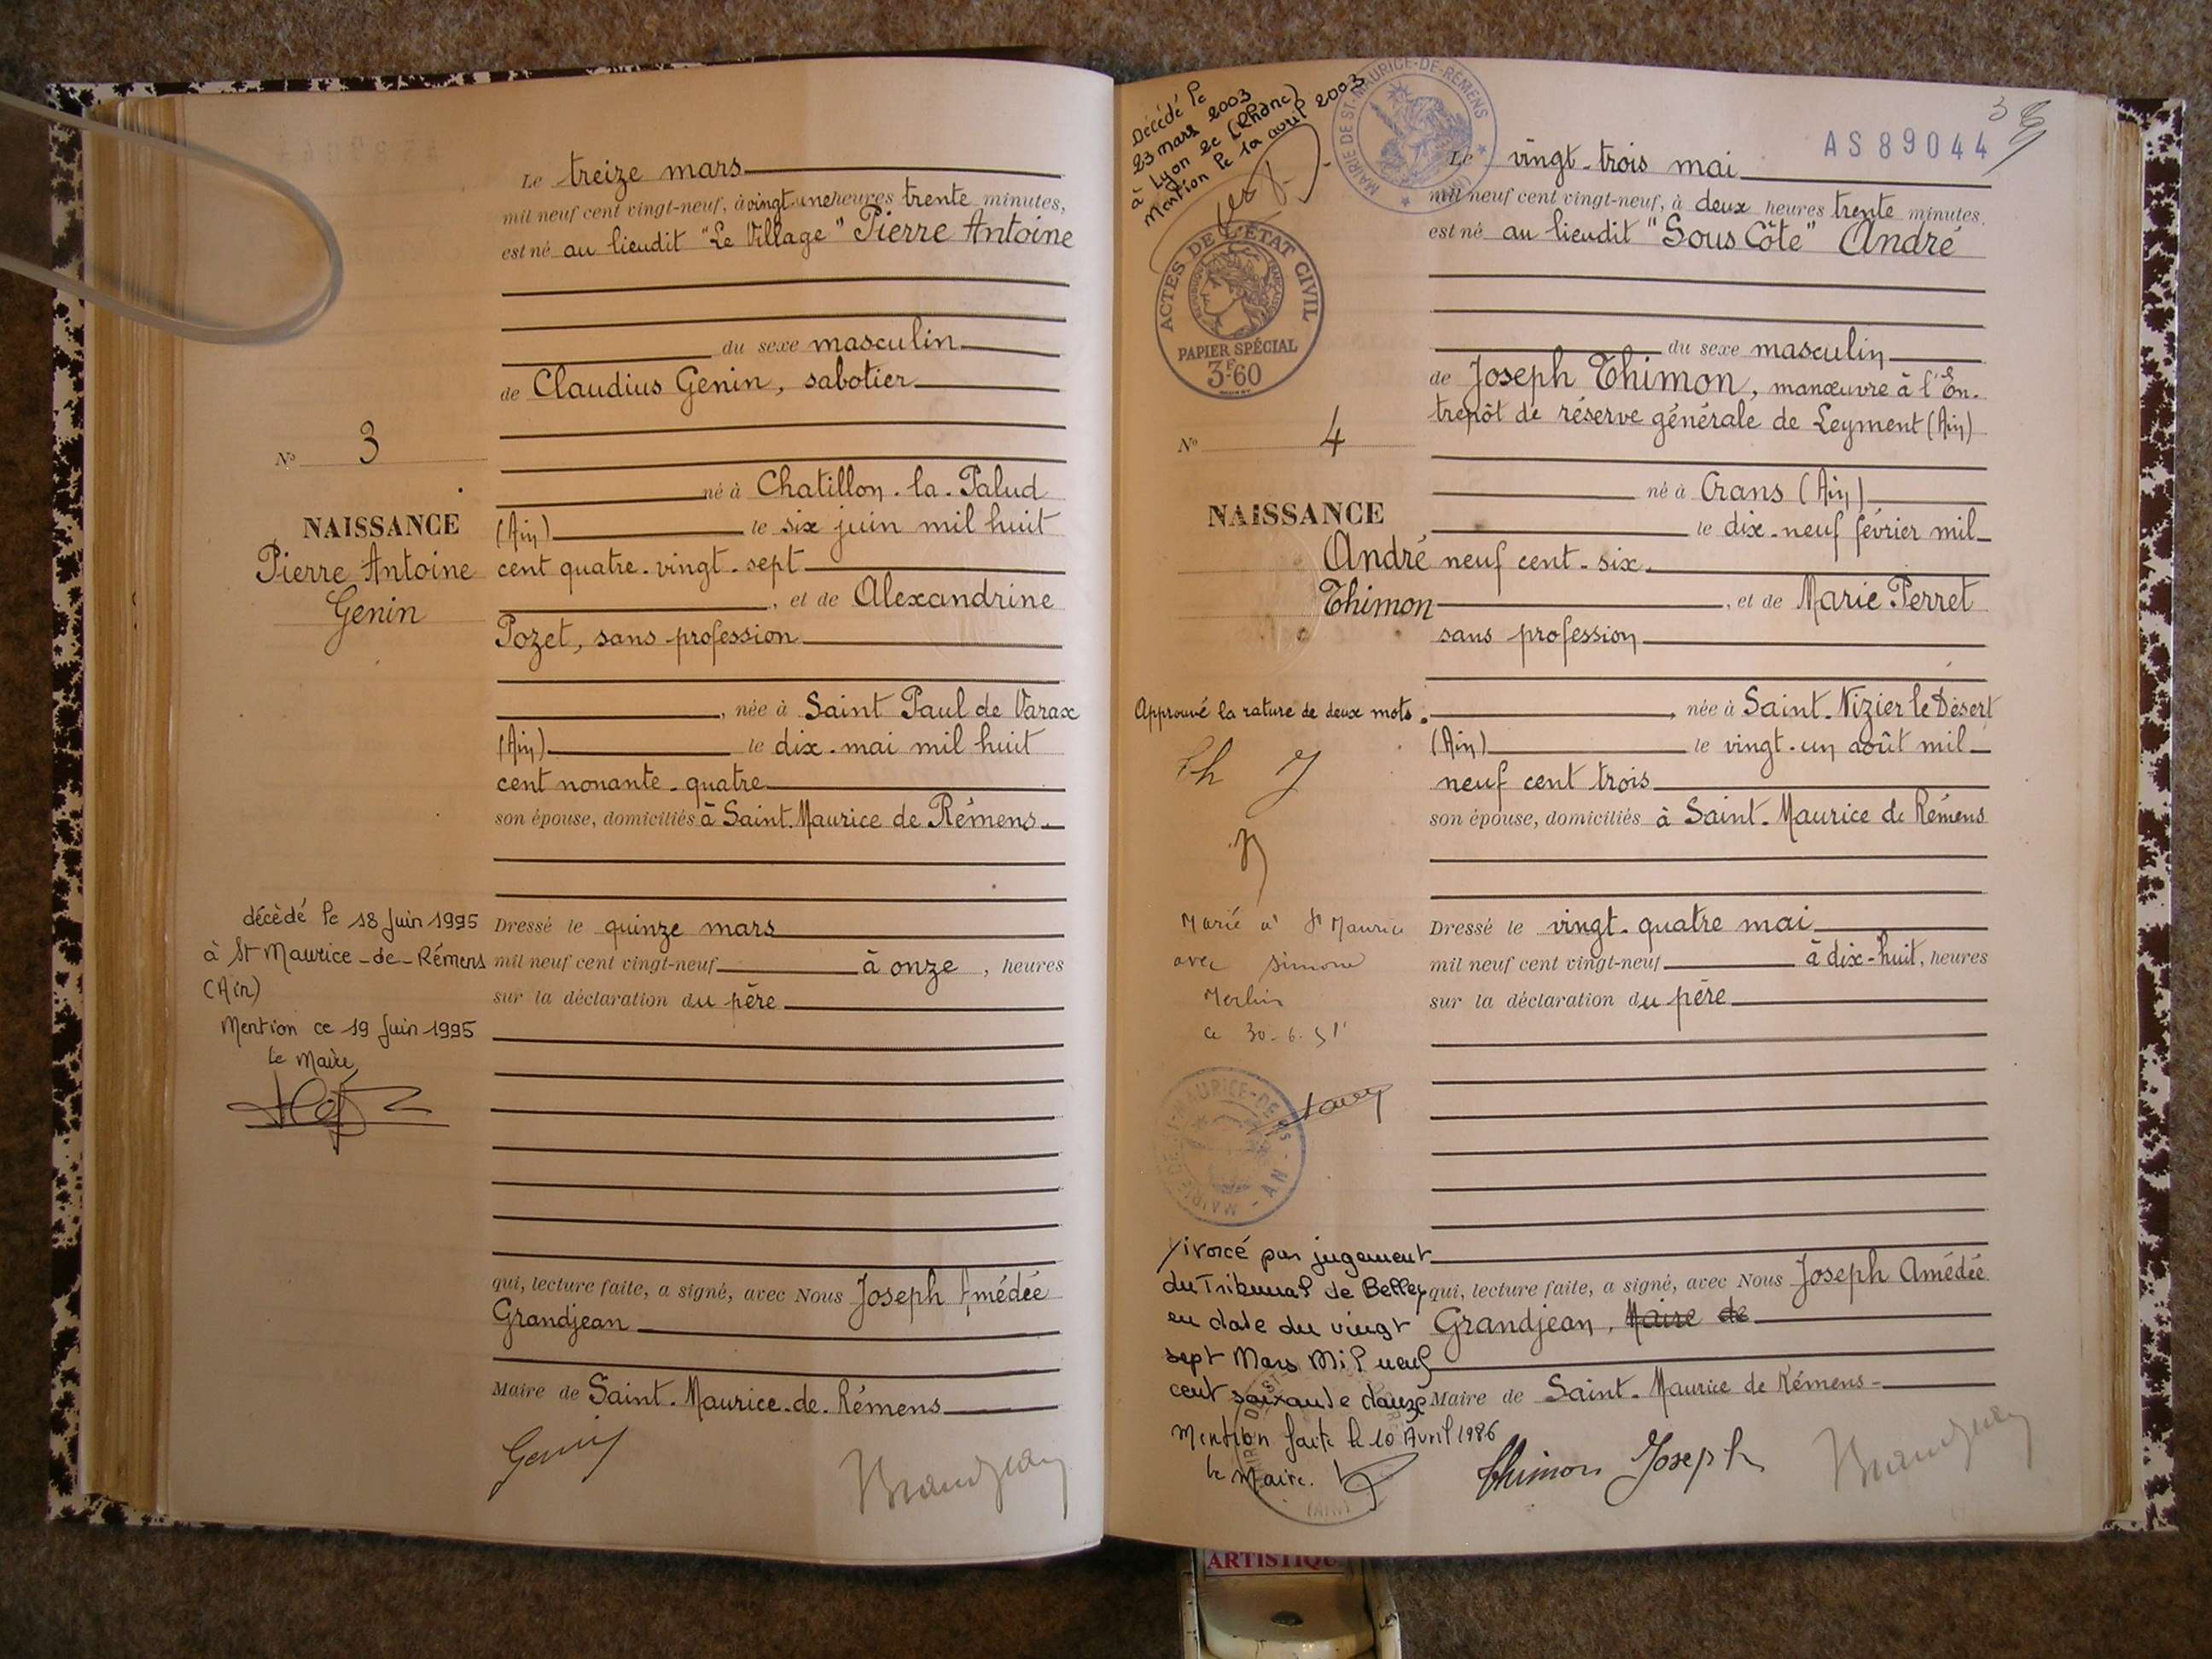 Le treize mars
mil neuf cent vingt-neuf, à vingt-une heures trente minutes,
est né au lieudit "Le Village" Pierre Antoine
du sexe masculin
de Claudius Genin, sabotier
N° 3
né à Chatillon-la-Palud
NAISSANCE
(Ain) le six juin mil huit
Pierre Antoine
Genin
cent quatre-vingt-sept
, et de Alexandrine
Pozet, sans profession
, née à Saint Paul de Varax
(Ain) le dix mai mil huit
cent nonante-quatre
son épouse, domiciliés à Saint-Maurice de Rémens
décédé le 18 Juin 1995
à St Maurice-de-Rémens
(Ain)
Mention ce 19 Juin 1995
le Maire,
Dressé le quinze mars
mil neuf cent vingt-neuf à onze, heures
sur la déclaration du père
qui, lecture faite, a signé, avec Nous Joseph Amédée
Grandjean
Maire de Saint-Maurice-de-Rémens
Genin
Grandjean
Décédé le
23 mars 2003
à Lyon 2e (Rhône)
Mention le 12 avril 2003
MAIRIE DE ST-MAURICE-DE-RÉMENS
3
AS89044
Le vingt-trois mai
mil neuf cent vingt-neuf, à deux heures trente minutes,
est né au lieudit "Sous Côte" André
ACTES DE L'ÉTAT CIVIL
RÉPUBLIQUE FRANÇAISE
PAPIER SPÉCIAL
3F60
du sexe masculin
de Joseph Thimon, manœuvre à l'En-
trepôt de réserve générale de Leyment (Ain)
N° 4
né à Crans (Ain)
NAISSANCE
le dix-neuf février mil
André
Thimon
neuf cent-six
, et de Marie Perret
sans profession
Approuvé la rature de deux mots.
Th J
, née à Saint-Nizier le Désert
(Ain) le vingt-un août mil
neuf cent trois
son épouse, domiciliés à Saint-Maurice de Rémens
Marié à St Maurice
avec Simone
Merlin
le 30-6-51
MAIRIE DE ST-MAURICE-DE-RÉMENS - AIN -
Dressé le vingt-quatre mai
mil neuf cent vingt-neuf à dix-huit, heures
sur la déclaration du père
Divorcé par jugement
du Tribunal de Belley
en date du vingt
sept Mars Mil neuf
cent soixante douze
Mention faite le 10 Avril 1986
le Maire.
(AIN)
qui, lecture faite, a signé, avec Nous Joseph Amédée
Grandjean, Maire de
Maire de Saint-Maurice de Rémens
Thimon Joseph
Grandjean
ARTISTIQUE